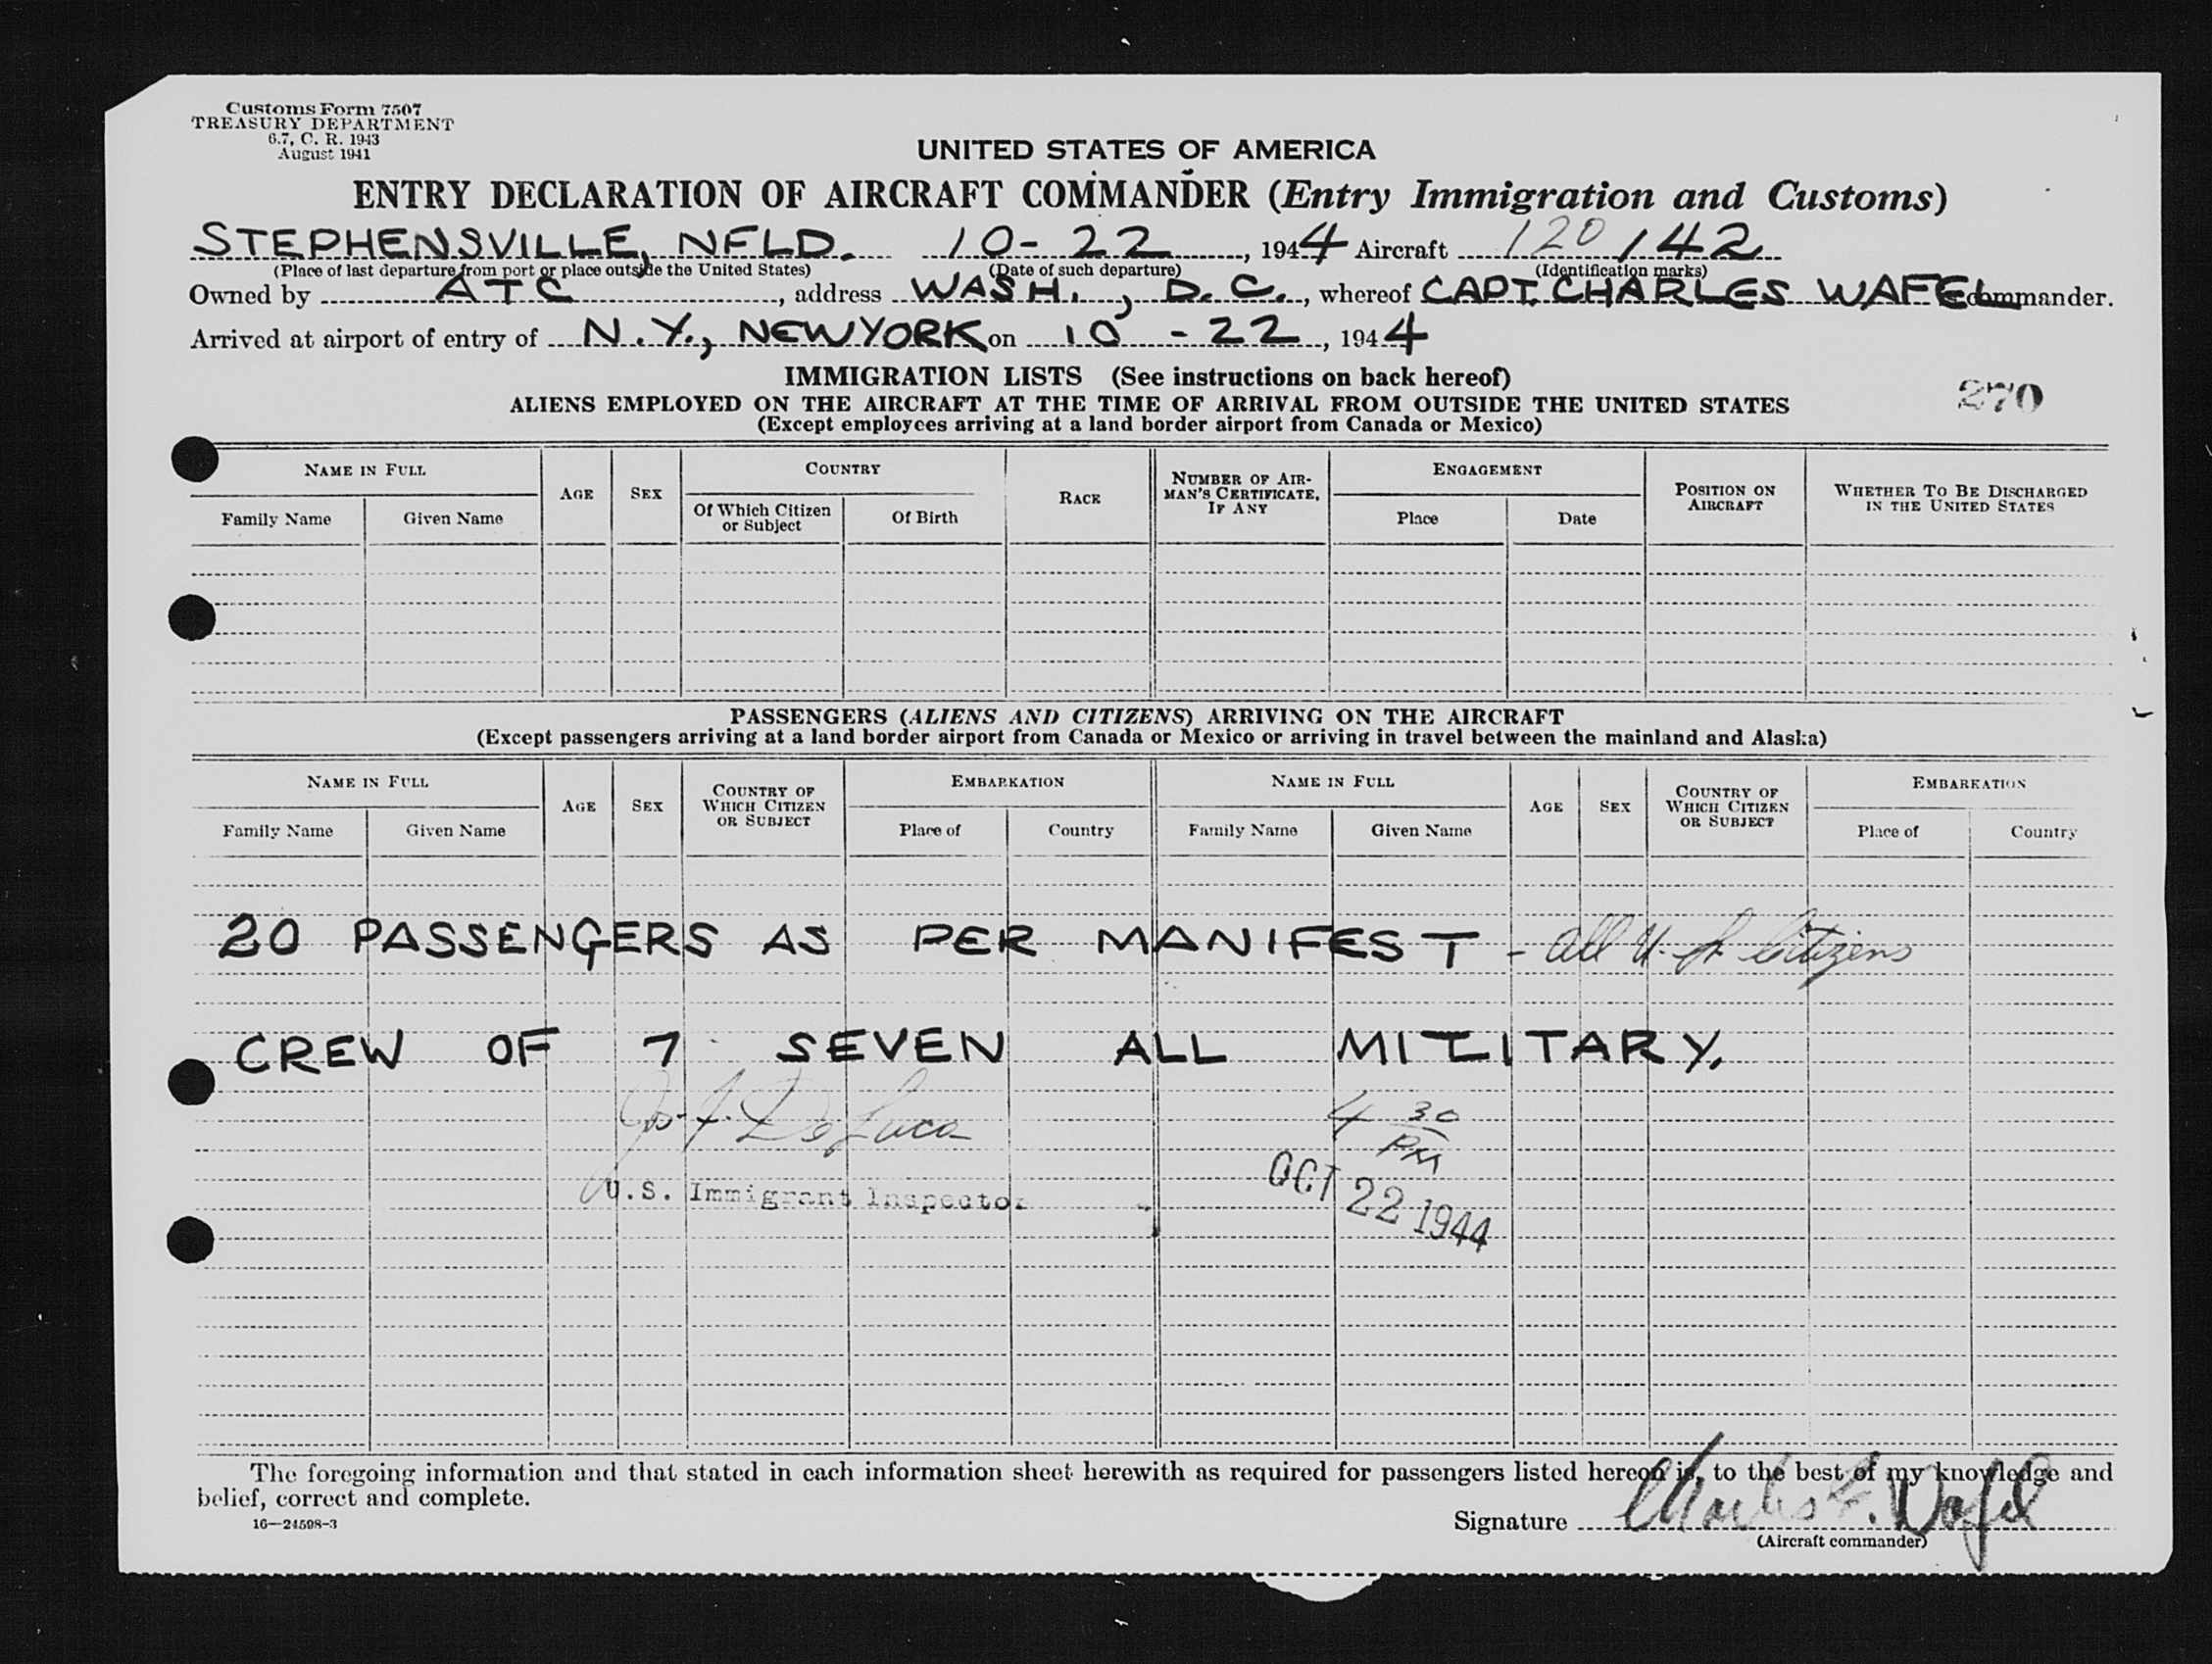 Customs Form 7507
TREASURY DEPARTMENT
6.7, C. R. 1943
August 1941
UNITED STATES OF AMERICA
ENTRY DECLARATION OF AIRCRAFT COMMANDER (Entry Immigration and Customs)
STEPHENSVILLE, NFLD. 10-22, 1944 Aircraft 120142
(Place of last departure from port or place outside the United States) (Date of such departure) (Identification marks)
Owned by ATC, address WASH., D.C., whereof CAPT. CHARLES WAFEL commander.
Arrived at airport of entry of N.Y., NEW YORK on 10-22, 1944
IMMIGRATION LISTS (See instructions on back hereof)
270
ALIENS EMPLOYED ON THE AIRCRAFT AT THE TIME OF ARRIVAL FROM OUTSIDE THE UNITED STATES
(Except employees arriving at a land border airport from Canada or Mexico)
NAME IN FULL AGE SEX COUNTRY RACE NUMBER OF AIRMAN'S CERTIFICATE, IF ANY ENGAGEMENT POSITION ON AIRCRAFT WHETHER TO BE DISCHARGED IN THE UNITED STATES
Family Name Given Name Of Which Citizen or Subject Of Birth Place Date
PASSENGERS (ALIENS AND CITIZENS) ARRIVING ON THE AIRCRAFT
(Except passengers arriving at a land border airport from Canada or Mexico or arriving in travel between the mainland and Alaska)
NAME IN FULL AGE SEX COUNTRY OF WHICH CITIZEN OR SUBJECT EMBARKATION NAME IN FULL AGE SEX COUNTRY OF WHICH CITIZEN OR SUBJECT EMBARKATION
Family Name Given Name Place of Country Family Name Given Name Place of Country
20 PASSENGERS AS PER MANIFEST - all U.S. Citizens
CREW OF 7 SEVEN ALL MILITARY.
Jos. J. DeLuca 4 30 PM
U.S. Immigrant Inspector OCT 22 1944
The foregoing information and that stated in each information sheet herewith as required for passengers listed hereon is, to the best of my knowledge and
belief, correct and complete.
16—24598-3
Signature Charles F. Wafel
(Aircraft commander)